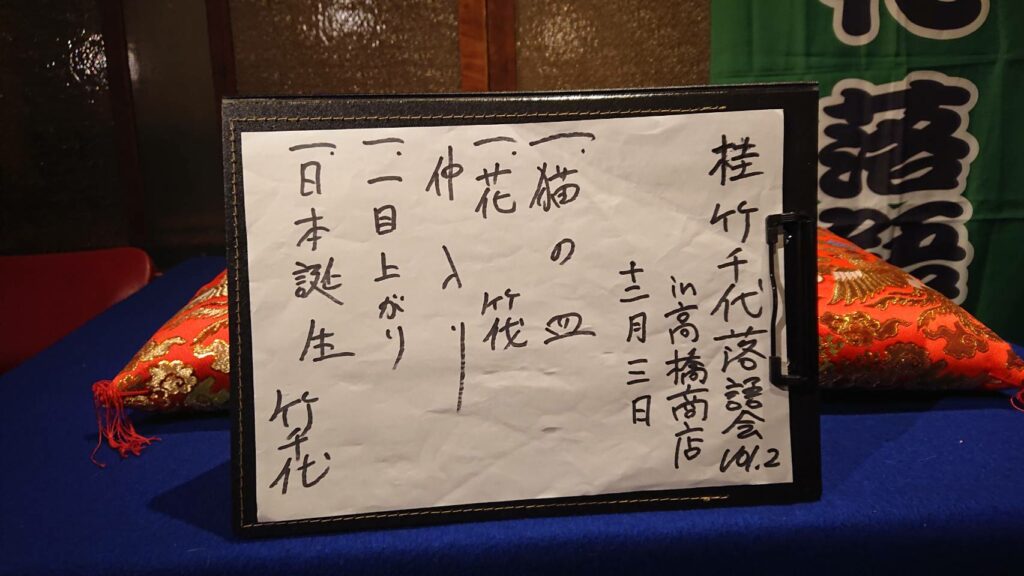 落語
桂竹千代落語会vol.2
in高橋商店
十二月三日
一.猫の皿
一.花筏
仲入り
一.一目上がり
一.日本誕生
竹千代